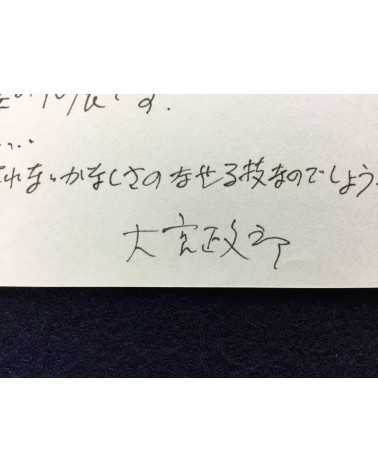 です.
....
れないかなしさのなせる技なのでしょう.
大宮政郎